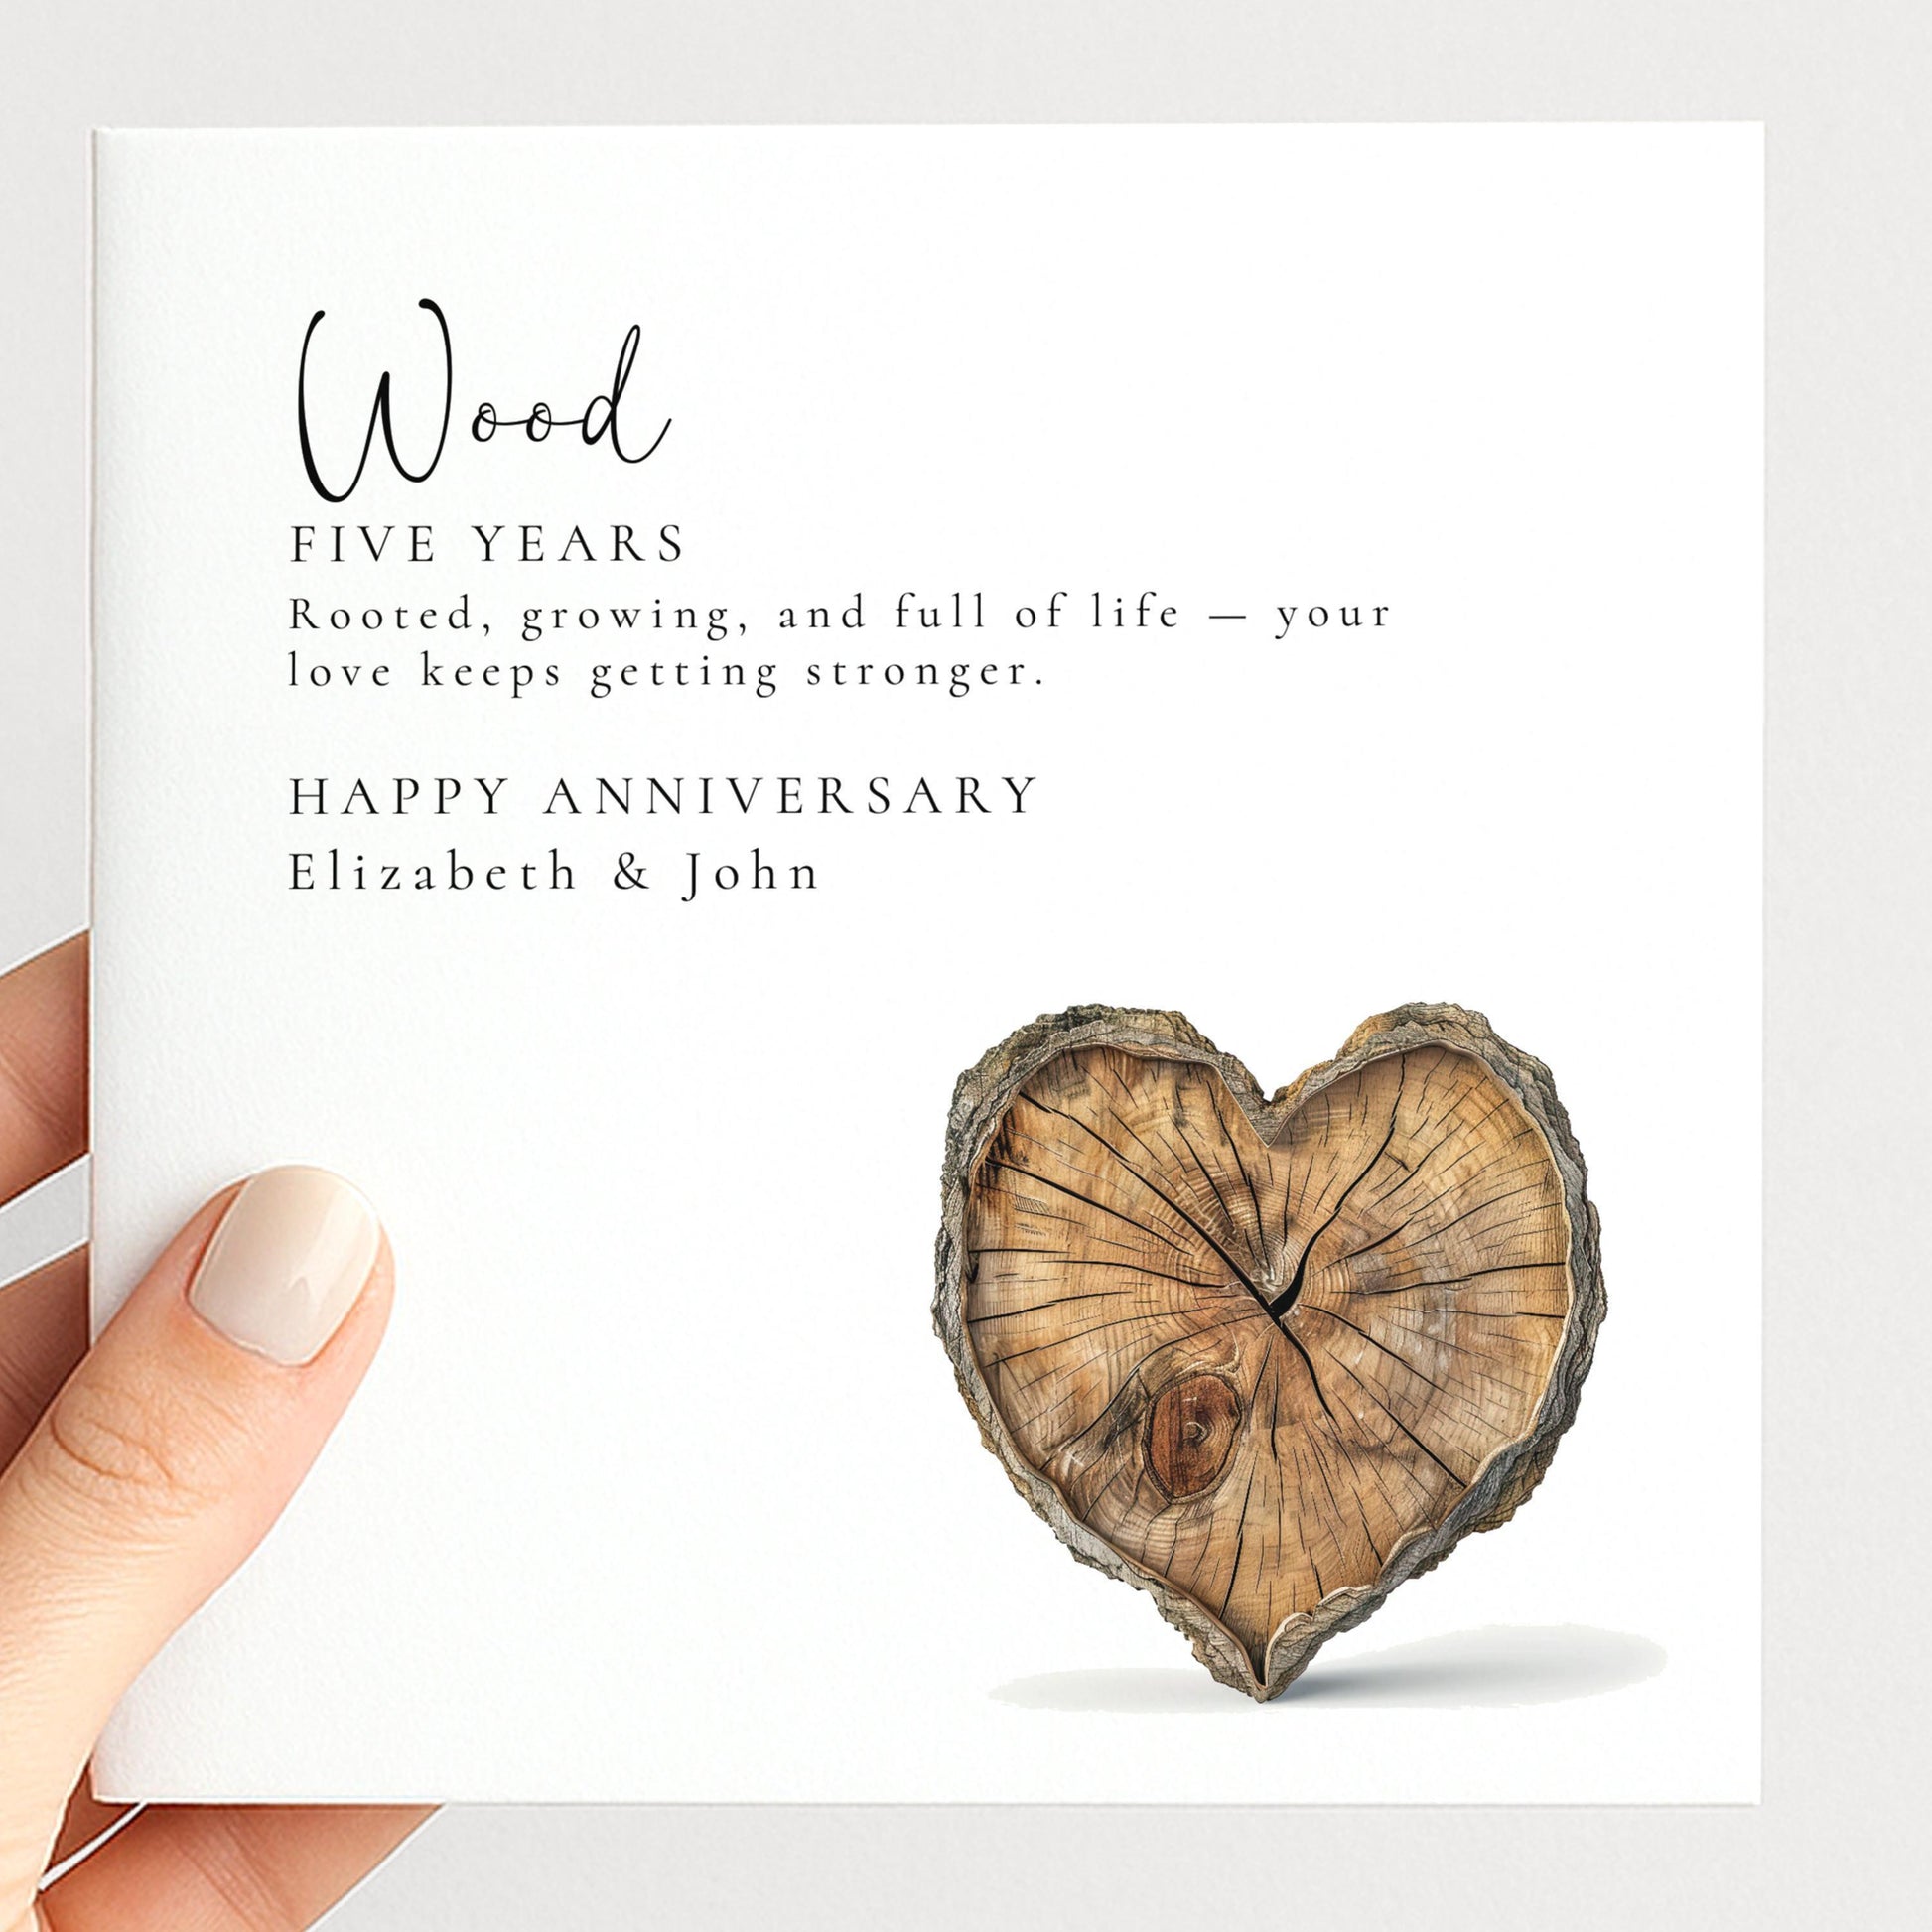 Wood
FIVE YEARS
Rooted, growing, and full of life — your
love keeps getting stronger.
HAPPY ANNIVERSARY
Elizabeth & John